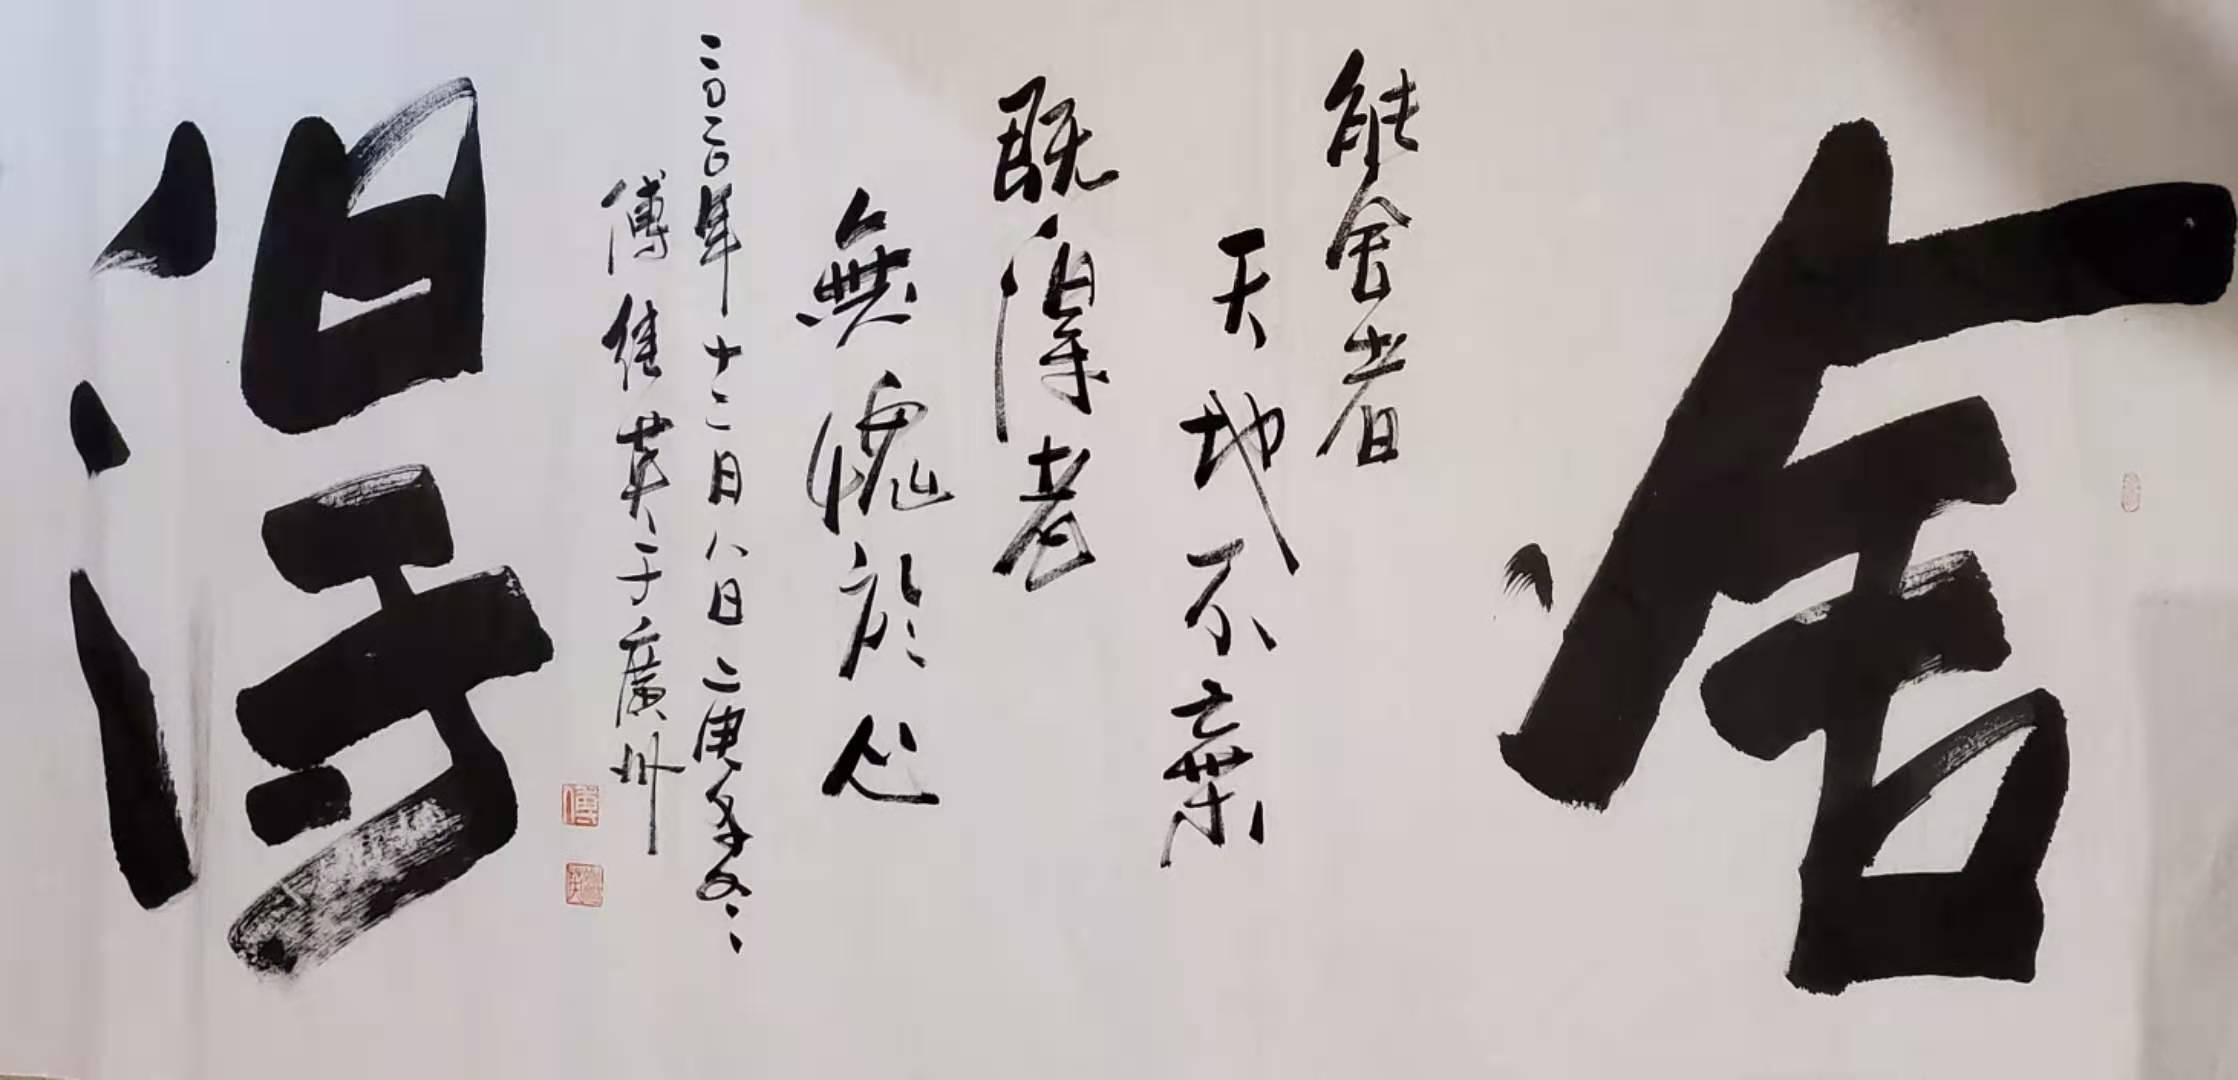 舍
能舍者
天地不棄
既得者
無愧於心
二〇二〇年十二月八日庚子冬
傅英于廣州
傅
得